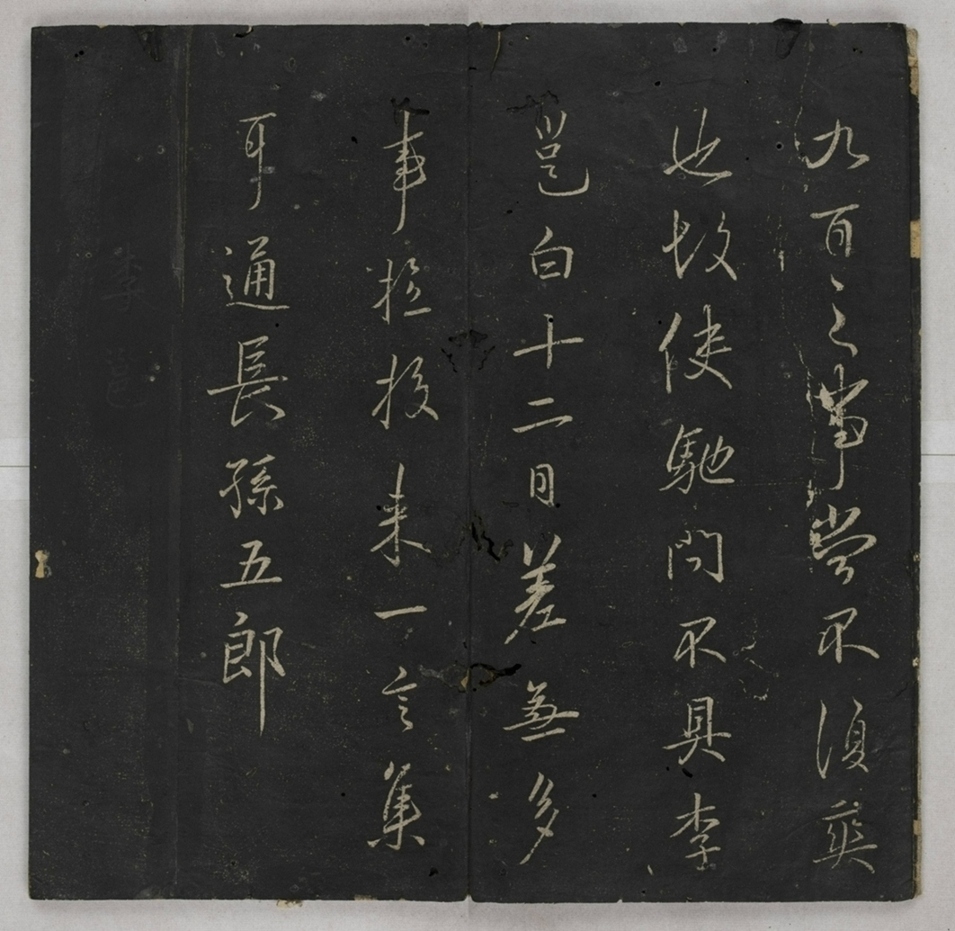 九百之事當不復爽
也故使馳問不具李
邕白十二日差無多
事投来一言集
耳通長孫五郎